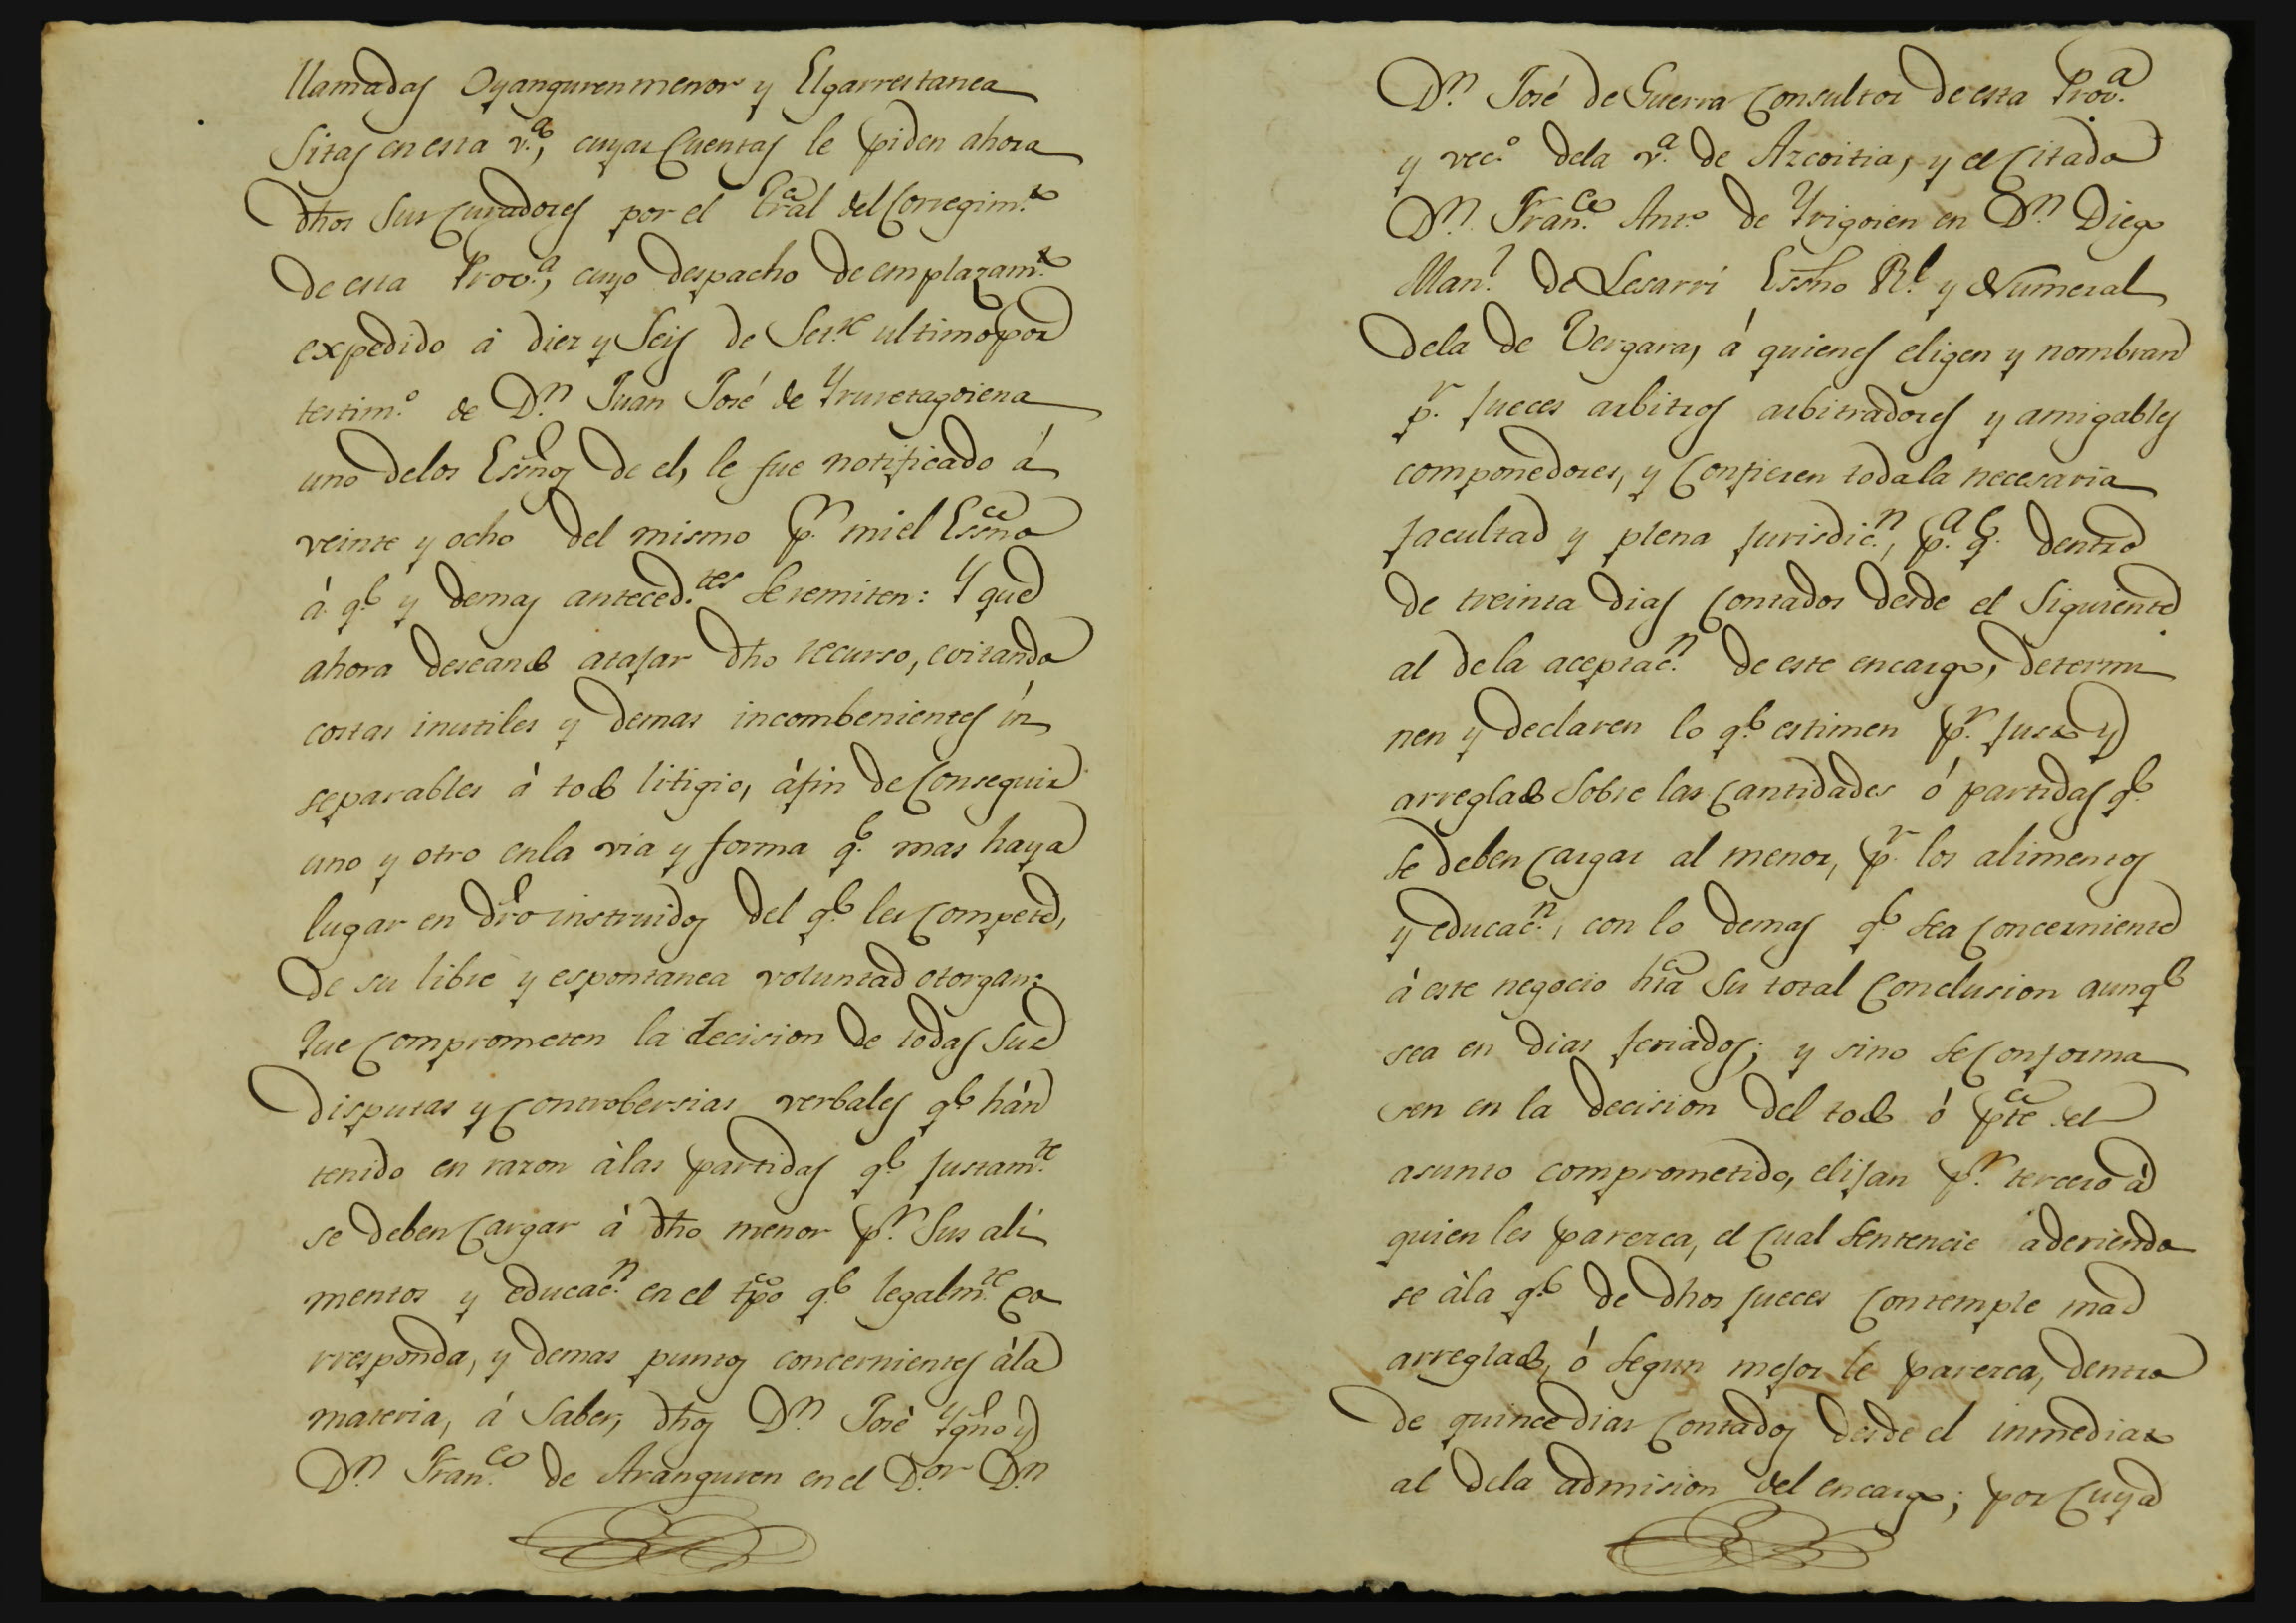 llamadas Oyanguren menor y Elgarrestanea
Sitas en esta v.ª, cuyas Cuentas le piden ahora
dhos sus Curadores por el Tral del Corregim.to
de esta Prov.ª, cuyo despacho de emplazam.to
expedido á diez y Seis de Set.re ultimo por
testim.º de D.n Juan José de Yruretagoiena
uno delos Essnos de el, le fue notificado á
veinte y ocho del mismo p.r mi el Essno
á q.e y demas anteced.tes se remiten: Y que
ahora deseando atajar dho recurso, evitando
costas inutiles y demas incombenientes in
separables à todo litigio, àfin de Conseguir
uno y otro enla via y forma q.e mas haya
lugar en dro instruidos del q.e les Compete,
de su libre y espontanea voluntad otorgan:
Que Comprometen la decision de todas sus
disputas y Controbersias verbales q.e hán
tenido en razon àlas partidas q.e justam.te
se deben Cargar à dho menor p.r sus ali
mentos y educac.n en el tpo q.e legalm.te co
rresponda, y demas puntos concernientes àla
materia, á Saber, dhos D.n José Ygno y
D.n Fran.co de Aranguren en el D.or D.n
D.n José de Guerra Consultor de esta Prov.ª
y vec.º dela v.ª de Azcoitia, y el Citado
D.n Fran.co Ant.º de Yrigoien en D.n Diego
Man.l de Lesarri Essno R.l y Numeral
dela de Vergara, á quienes eligen y nombran
p.r Jueces arbitros arbitradores y amigables
componedores, y Confieren toda la necesaria
facultad y plena Jurisdic.n, p.ª q.e dentro
de treinta dias Contados desde el Siguiente
al dela aceptac.n de este encargo, determi
nen y declaren lo q.e estimen p.r justo y
arreglado sobre las Cantidades ó partidas q.e
se deben Cargar al menor, p.r los alimentos
y educac.n, con lo demas q.e sea Concerniente
á este negocio hta su total Conclusion aunq.e
sea en dias feriados; y sino se Conforma
sen en la decision del todo ó pte del
asunto comprometido, elijan p.r tercero à
quien les parezca, el Cual Sentencie aderiendo
se àla q.e de dhos Jueces Contemple mas
arreglado, ó segun mejor le parezca, dentro
de quince dias Contados desde el inmediato
al dela admision del encargo; por Cuya